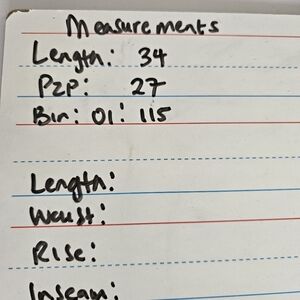 Measurements
Length: 34
P2P: 27
Bin: 01: 115
Length:
Waist:
Rise:
Inseam: